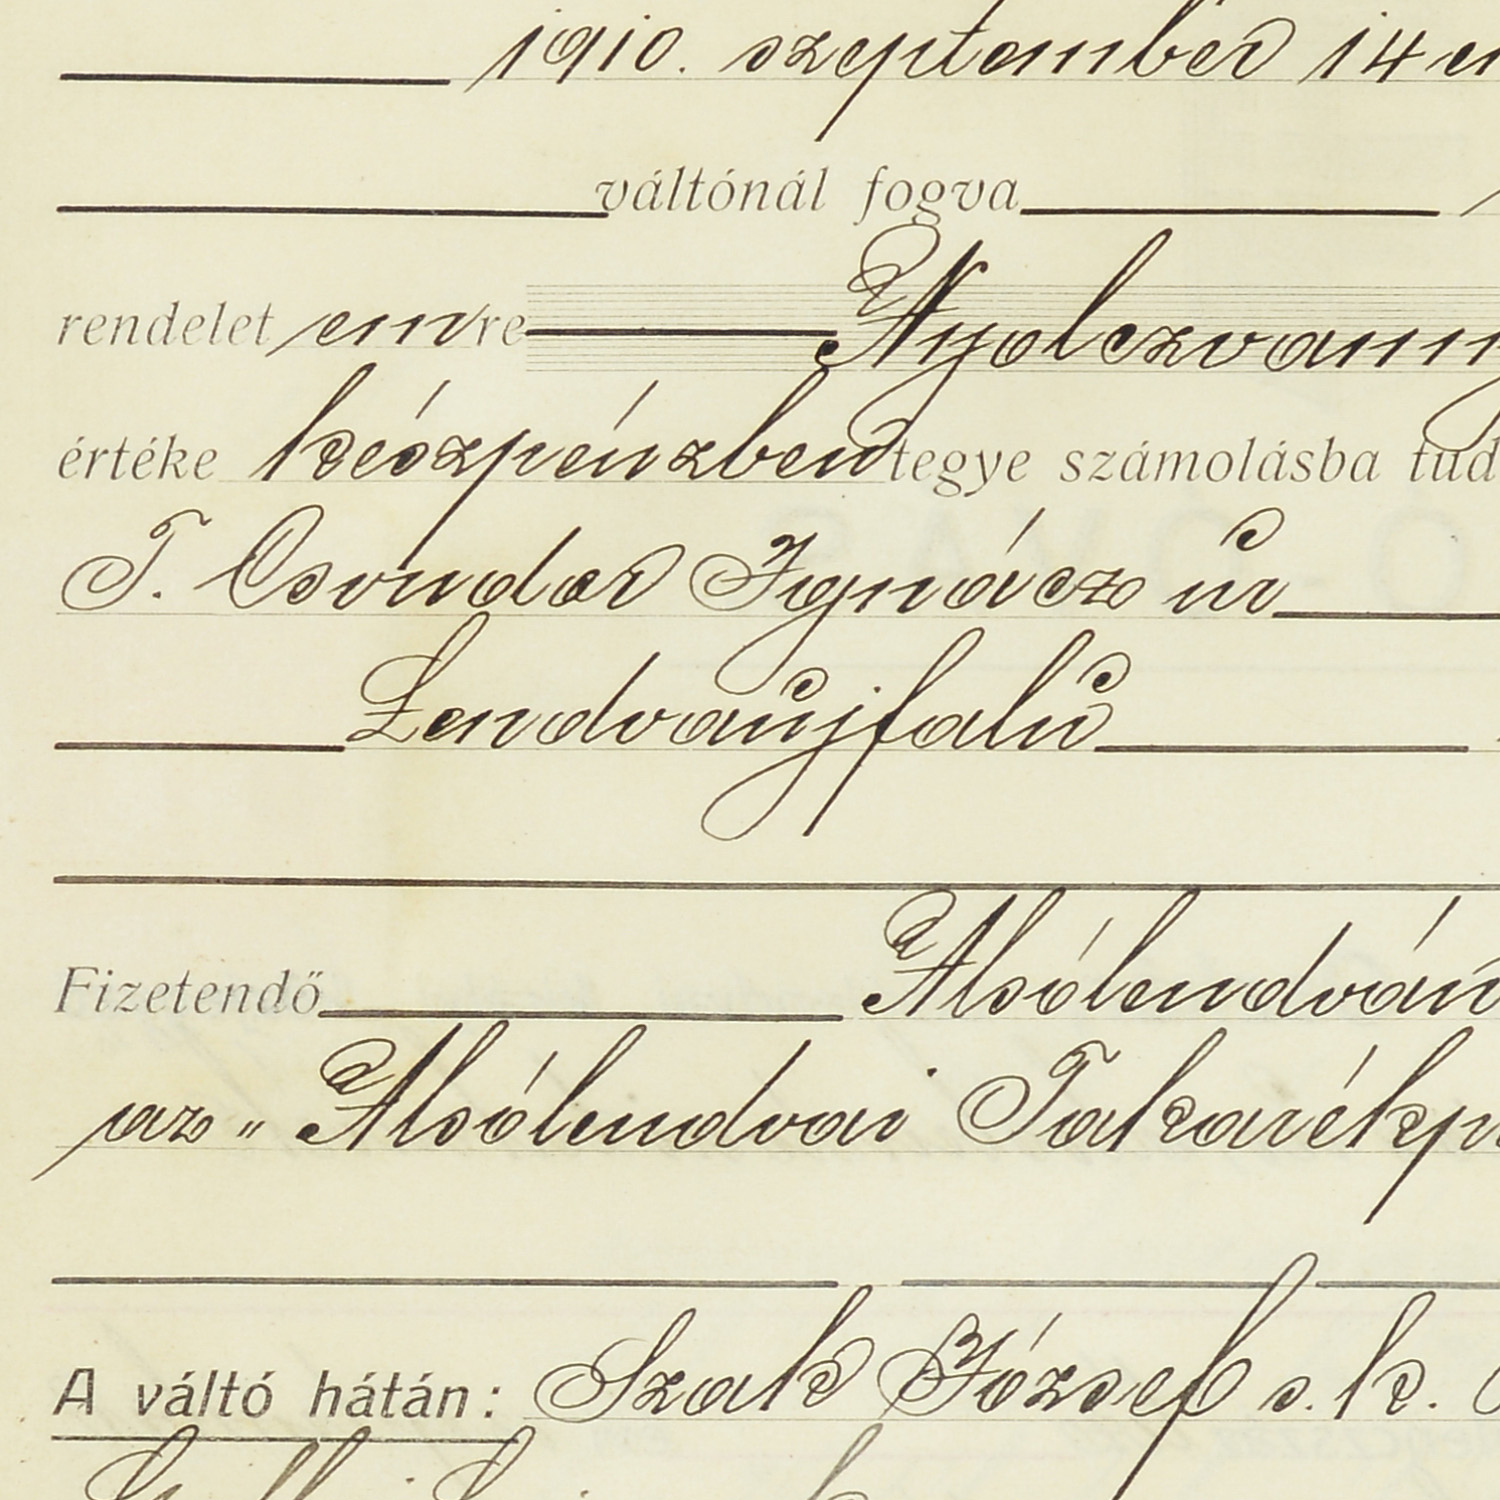 1910. szeptember 14 en
váltónál fogva
rendelet emre Nyolczvann
értéke készpénzben tegye számolásba tud
T. Csondor Ignácz úr
Lendvaújfalú
Fizetendő Alsólendván
az „ Alsólendvai Takarékp
A váltó hátán: Szak József s. k.